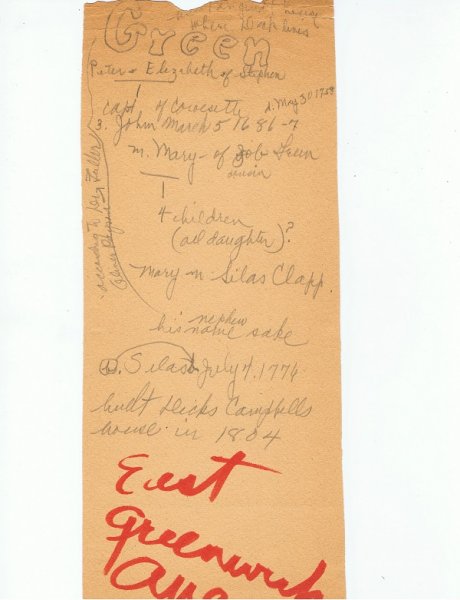 where Dick lives
Green
Peter & Elizabeth of Stephen
capt of Cowesett d. May 30 1758
3. John March 5 1686-7
m. Mary - of Job Green
cousin
4 children
(all daughter)?
Mary m Silas Clapp
nephew
his name sake
Silas July 4, 1776
built Dicks Campbells
house in 1804
East
Greenwich
according to